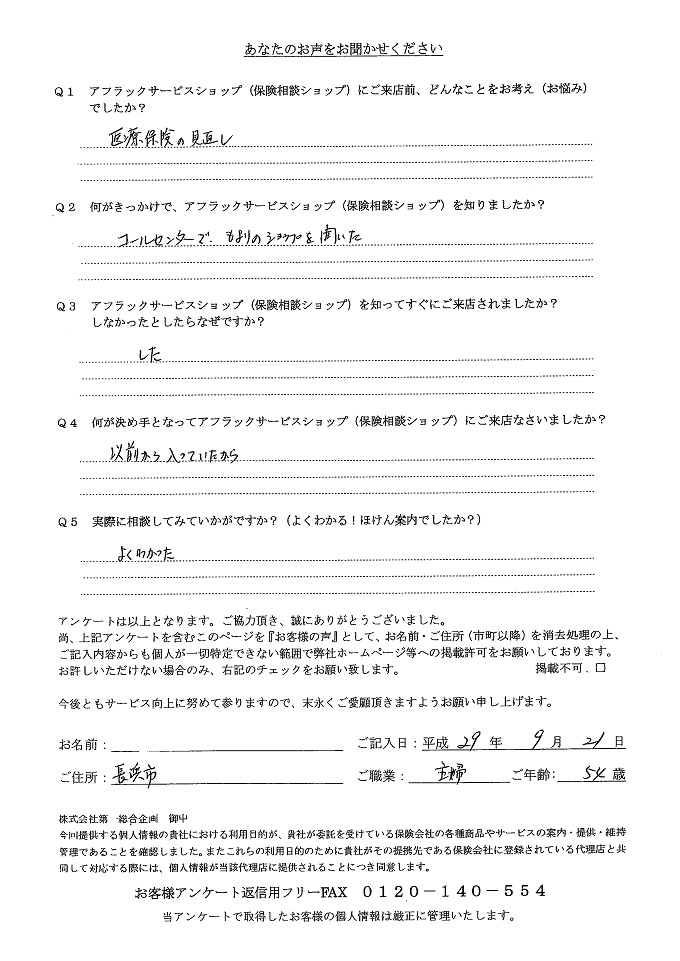 あなたのお声をお聞かせください
Q1 アフラックサービスショップ(保険相談ショップ)にご来店前、どんなことをお考え(お悩み)
でしたか?
医療保険の見直し
Q2 何がきっかけで、アフラックサービスショップ(保険相談ショップ)を知りましたか?
コールセンターで、もよりのショップを聞いた
Q3 アフラックサービスショップ(保険相談ショップ)を知ってすぐにご来店されましたか?
しなかったとしたらなぜですか?
した
Q4 何が決め手となってアフラックサービスショップ(保険相談ショップ)にご来店なさいましたか?
以前から入っていたから
Q5 実際に相談してみていかがですか?(よくわかる!ほけん案内でしたか?)
よくわかった
アンケートは以上となります。ご協力頂き、誠にありがとうございました。
尚、上記アンケートを含むこのページを『お客様の声』として、お名前・ご住所(市町以降)を消去処理の上、
ご記入内容からも個人が一切特定できない範囲で弊社ホームページ等への掲載許可をお願いしております。
お許しいただけない場合のみ、右記のチェックをお願い致します。 掲載不可.□
今後ともサービス向上に努めて参りますので、末永くご愛顧頂きますようお願い申し上げます。
お名前: ご記入日:平成 29 年 9 月 21 日
ご住所:長浜市 ご職業: 主婦 ご年齢: 54 歳
株式会社第一総合企画 御中
今回提供する個人情報の貴社における利用目的が、貴社が委託を受けている保険会社の各種商品やサービスの案内・提供・維持
管理であることを確認しました。またこれらの利用目的のために貴社がその提携先である保険会社に登録されている代理店と共
同して対応する際には、個人情報が当該代理店に提供されることにつき同意します。
お客様アンケート返信用フリーFAX 0120-140-554
当アンケートで取得したお客様の個人情報は厳正に管理いたします。